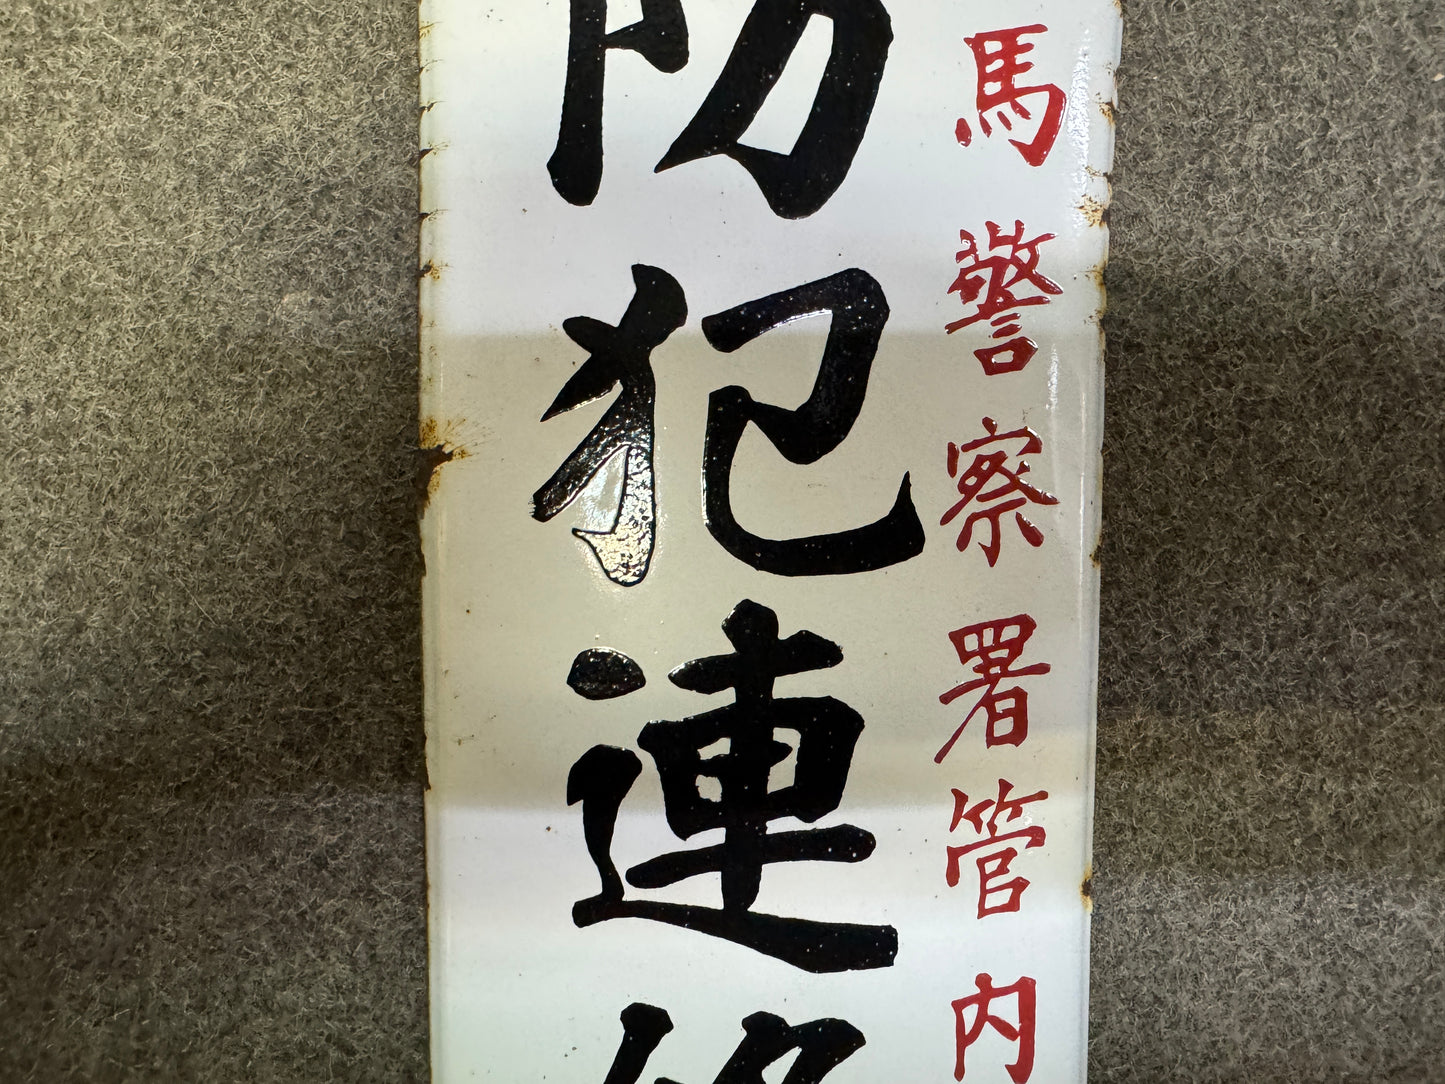 馬警察署管内
防犯連絡